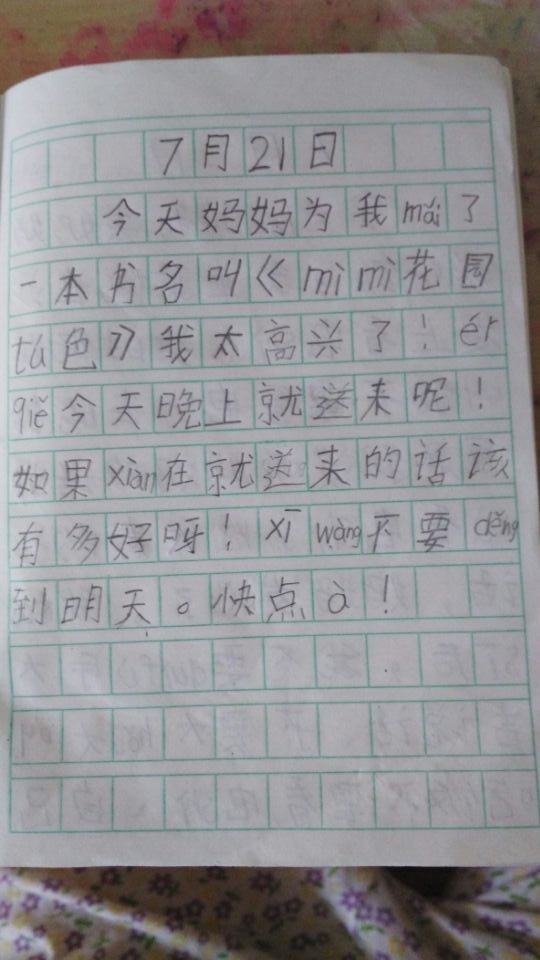 7月21日
今天妈妈为我mǎi了
一本书名叫《mìmì花园
tú色》我太高兴了！ér
qiě今天晚上就送来呢！
如果xiàn在就送来的话该
有多好呀！xīwàng不要děng
到明天。快点à！